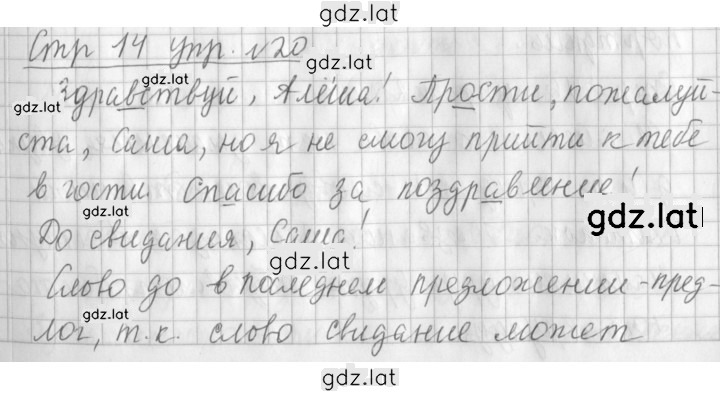 gdz.lat
Стр 14 упр. №20
gdz.lat
gdz.lat
Здравствуй, Алёша! Прости, пожалуй-
gdz.lat
ста, Саша, но я не смогу прийти к тебе
в гости. Спасибо за поздравление!
gdz.lat
gdz.lat
До свидания, Саша!
gdz.lat
Слово до в последнем предложении - пред-
лог, т.к. слово свидание может
gdz.lat
gdz.lat